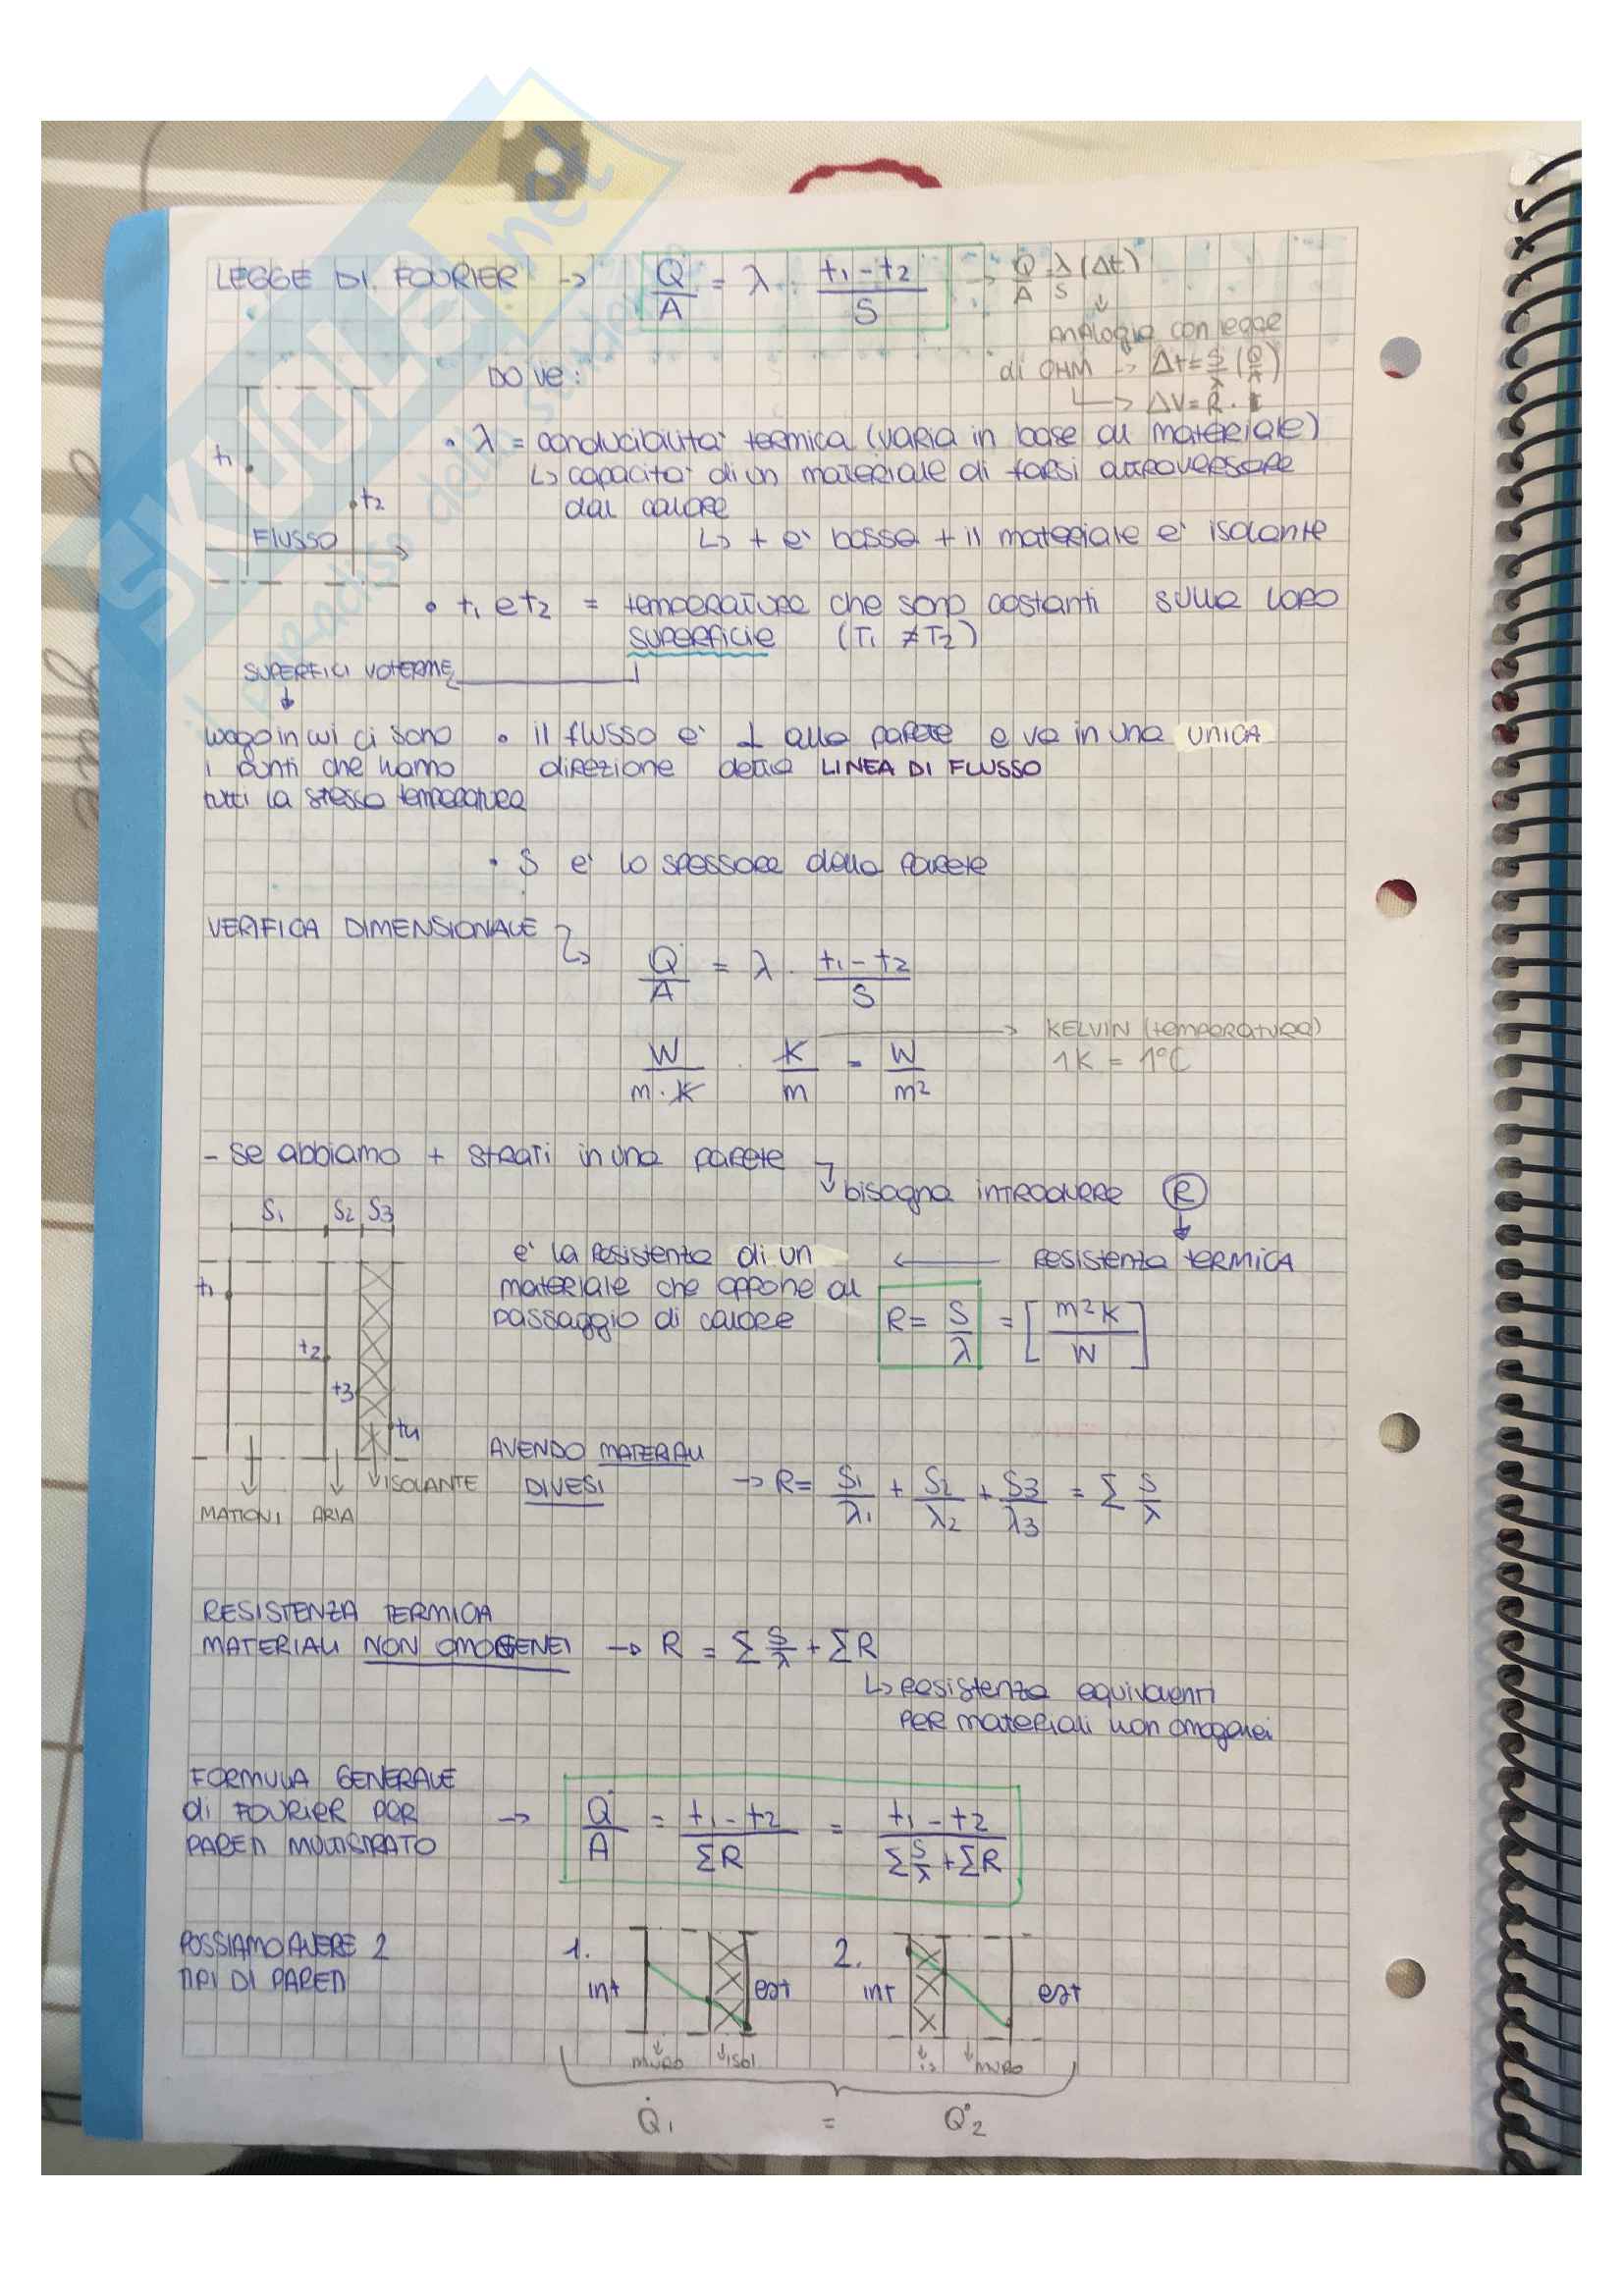 LEGGE DI FOURIER → Q̇/A = λ · (t1 - t2)/S → Q̇/A = λ/S (Δt)
analogia con legge
di OHM → Δt = S/λ (Q̇/A)
→ ΔV = R · I
DOVE:
t1
t2
FLUSSO
• λ = conducibilità termica (varia in base al materiale)
↳ capacità di un materiale di farsi attraversare
dal calore
↳ + è bassa + il materiale è isolante
• t1 e t2 = temperature che sono costanti sulla loro
superficie (T1 ≠ T2)
SUPERFICI ISOTERME
luogo in cui ci sono
i punti che hanno
tutti la stessa temperatura
• il flusso è ⊥ alla parete e va in una UNICA
direzione detta LINEA DI FLUSSO
• S è lo spessore della parete
VERIFICA DIMENSIONALE
Q̇/A = λ · (t1 - t2)/S
W/(m · K) · K/m = W/m²
→ KELVIN (temperatura)
1K = 1°C
- se abbiamo + strati in una parete
↳ bisogna introdurre R
S1 S2 S3
RESISTENZA TERMICA
è la resistenza di un
materiale che oppone al
passaggio di calore
R = S/λ = [m²K/W]
t1
t2
t3
t4
MATTONI ARIA ISOLANTE
AVENDO MATERIALI
DIVESI → R = S1/λ1 + S2/λ2 + S3/λ3 = Σ S/λ
RESISTENZA TERMICA
MATERIALI NON OMOGENEI → R = Σ S/λ + ΣR
↳ resistenze equivalenti
per materiali non omogenei
FORMULA GENERALE
di FOURIER PER
PARETI MULTISTRATO → Q̇/A = (t1 - t2)/ΣR = (t1 - t2)/(Σ S/λ + ΣR)
POSSIAMO AVERE 2
TIPI DI PARETI
1.
int est
muro isol
2.
int est
is muro
Q̇1 = Q̇2
SKUOLA.net
il paradiso dello studente